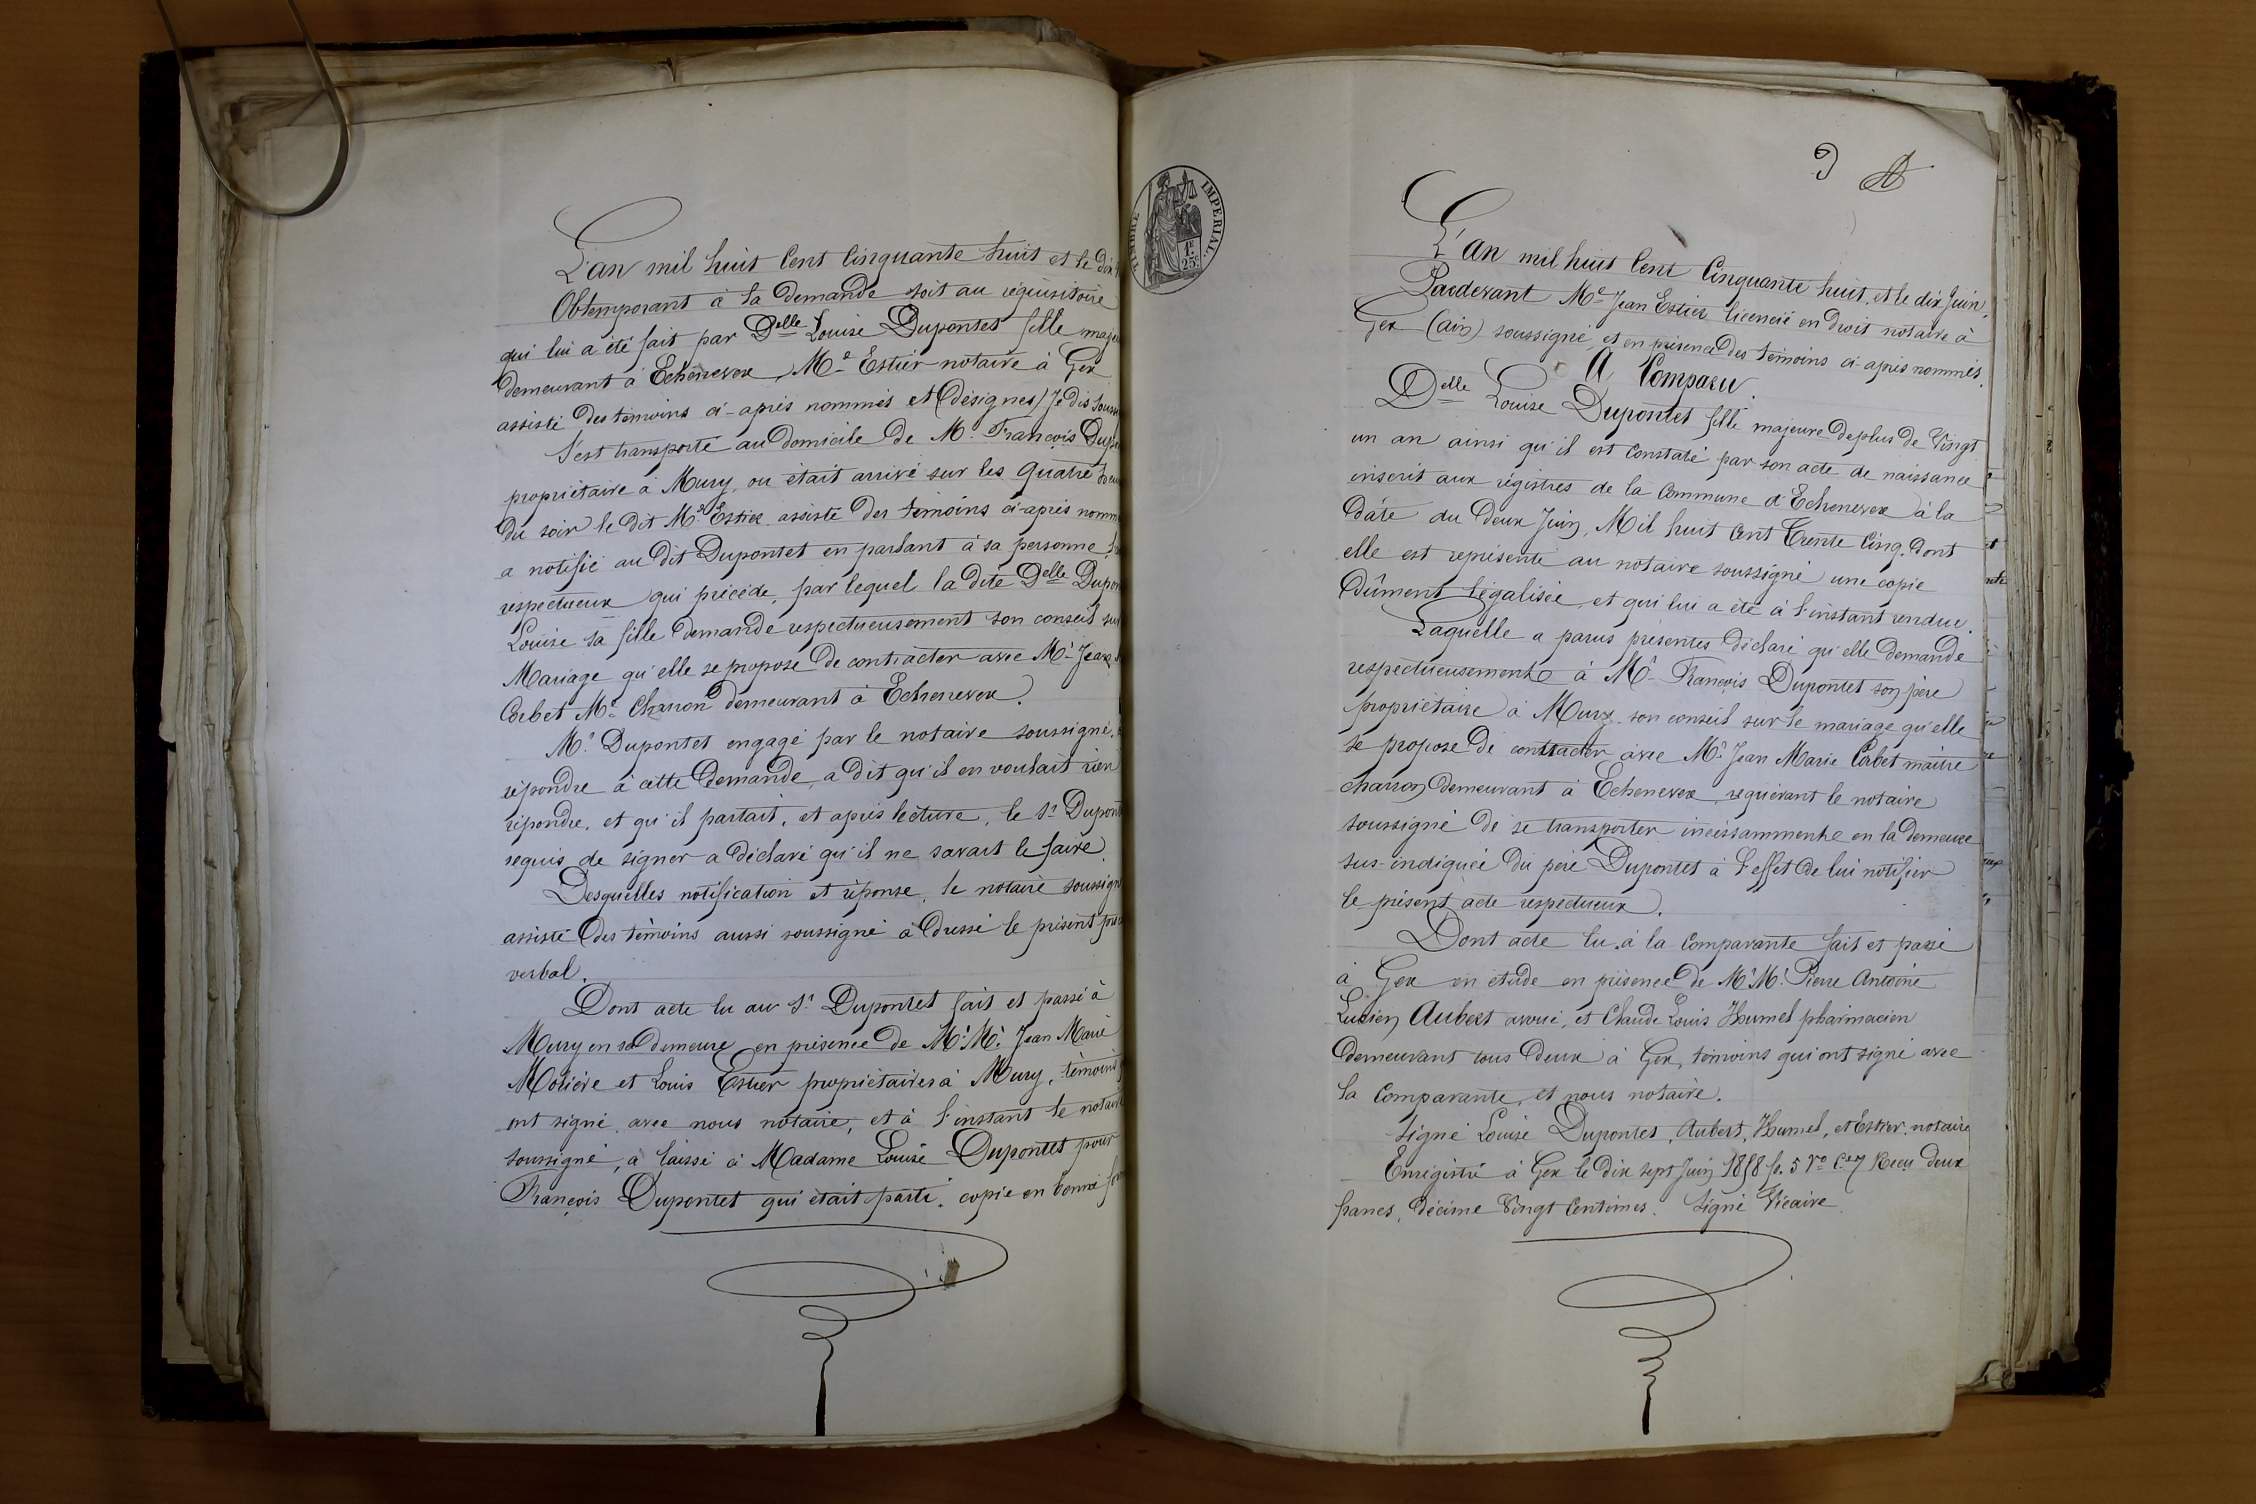 L'an mil huit Cent Cinquante huit et le dix
Obtemporant à la Demande soit au réquisitoire
qui lui a été fait par Delle Louise Dupontet fille
demeurant à Echenevex, Me Estier notaire à Gex
assisté des témoins ci-après nommés et (désignés) Je dis
S'est transporté au domicile de Mr. François
propriétaire à Mury, ou était arrivé sur les quatre
du soir le dit Me Estier assisté des témoins ci-après
a notifié au dit Dupontet en parlant à sa personne
respectueux qui précède, par lequel la dite Delle
Louise sa fille demande respectueusement son conseil
Mariage qu'elle se propose de contracter avec Mr. Jean
Corbet Me Charron demeurant à Echenevex.
Mr. Dupontet engagé par le notaire soussigné,
répondre à cette Demande, a dit qu'il en voulait rien
répondre, et qu'il partait, et après lecture, le Sr
requis de signer a déclaré qu'il ne savait le faire
Desquelles notification et réponse, le notaire
assisté des témoins aussi soussigné à dressé le présent
verbal.
Dont acte lu au Sr. Dupontet fait et passé à
Mury en sa demeure en présence de Mr. Mr. Jean Marie
Molière et Louis Estier propriétaires à Mury, témoins
ont signé avec nous notaire, et à l'instant le
soussigné, a laissé à Madame Louise Dupontet pour
François Dupontet qui était parti, copie en bonne
TIMBRE IMPERIAL
1F.
25c
L'an mil huit Cent Cinquante huit, et le dix Juin,
Pardevant Me Jean Estier licencié en Droit notaire à
Gex (ain) soussigné, et en présence des témoins ci-après nommés.
A Comparu.
Delle Louise Dupontet fille majeure de plus de Vingt
un an ainsi qu'il est Constaté par son acte de naissance
inscrit aux régistres de la Commune d'Echenevex à la
Date du deux Juin, Mil huit Cent Trente Cinq. Dont
elle est représenté au notaire soussigné une copie
Dûment légalisée, et qui lui a été à l'instant rendue.
Laquelle a parus présentes déclaré qu'elle demande
respectueusement à Mr. François Dupontet son père
propriétaire à Mury son conseil sur le mariage qu'elle
se propose de contracter avec Mr. Jean Marie Corbet maître
charron demeurant à Echenevex, requérant le notaire
soussigné de se transporter incéssamment en la demeure
sus-indiquée du père Dupontet à l'effet de lui notifier
le présent acte respectueux.
Dont acte lu à la Comparante fait et passé
à Gex en étude en présence de Mr. Mr. Pierre Antoine
Lucien Aubert avoué, et Claude Louis Humel pharmacien
demeurant tous deux à Gex, témoins qui ont signé avec
la Comparante, et nous notaire.
Signé Louise Dupontet, Aubert, Humel, et Estier. notaire
Enregistré à Gex le dix sept Juin 1858 fo. 5 Vo Ce 7 Reçu deux
francs, décime Vingt Centimes. Signé Vicaire